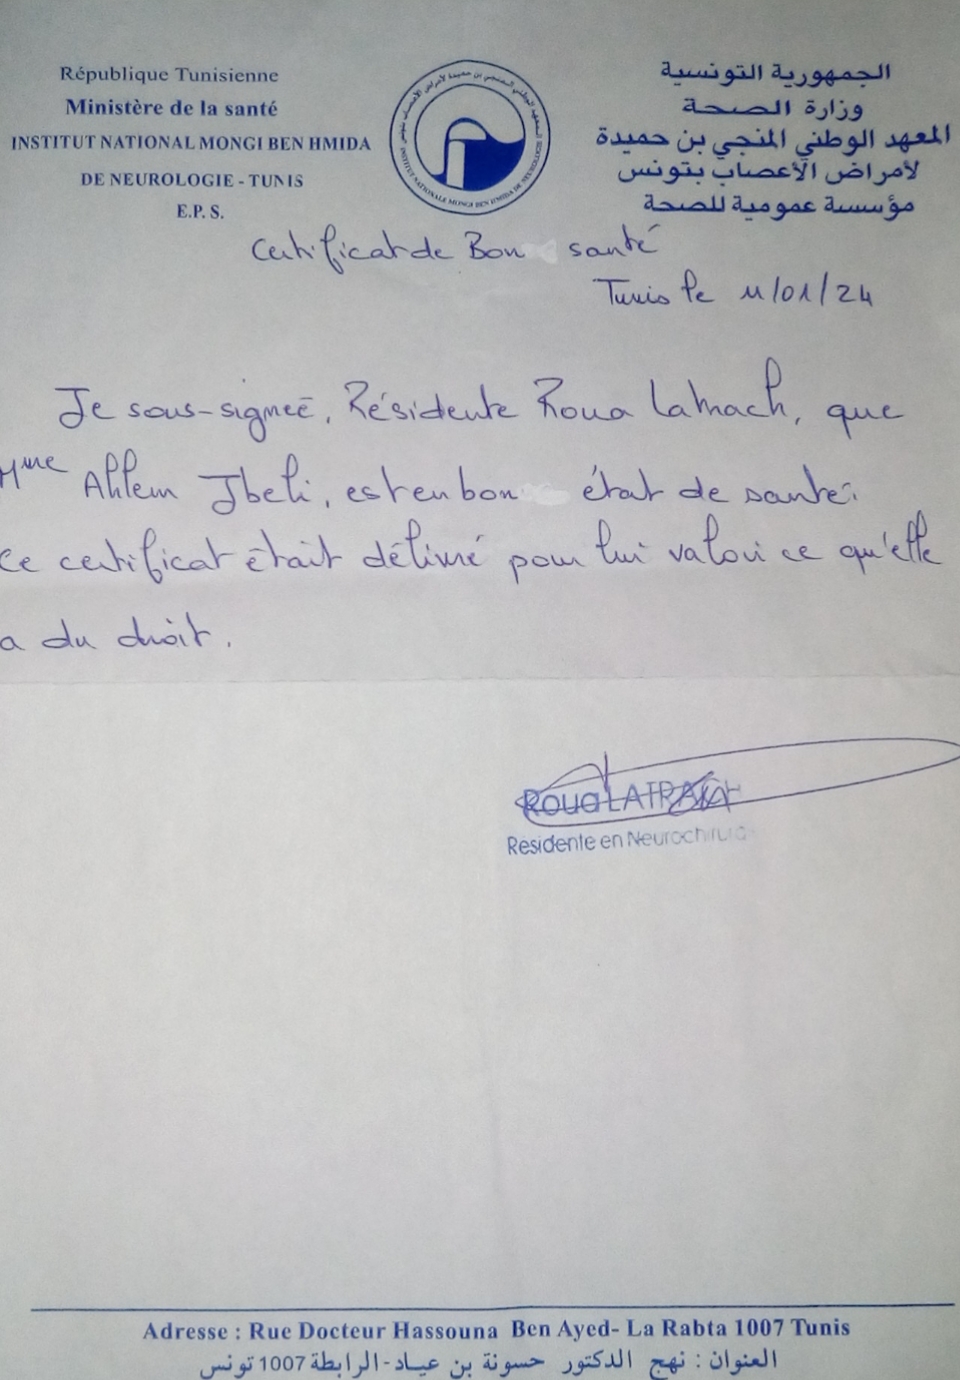 République Tunisienne
Ministère de la santé
INSTITUT NATIONAL MONGI BEN HMIDA
DE NEUROLOGIE - TUNIS
E.P. S.
الجمهورية التونسية
وزارة الصحة
المعهد الوطني المنجي بن حميدة
لأمراض الأعصاب بتونس
مؤسسة عمومية للصحة
Certificat de Bon santé
Tunis le 11/01/24
Je sous-signeé, Résidente Roua Latrach, que
Mme Ahlem Jbeli, est en bon état de santé.
Ce certificat était délivré pour lui valoir ce qu'elle
a du droit.
Roua LATRACH
Résidente en Neurochirurgie
Adresse : Rue Docteur Hassouna Ben Ayed- La Rabta 1007 Tunis
العنوان : نهج الدكتور حسونة بن عياد - الرابطة 1007 تونس